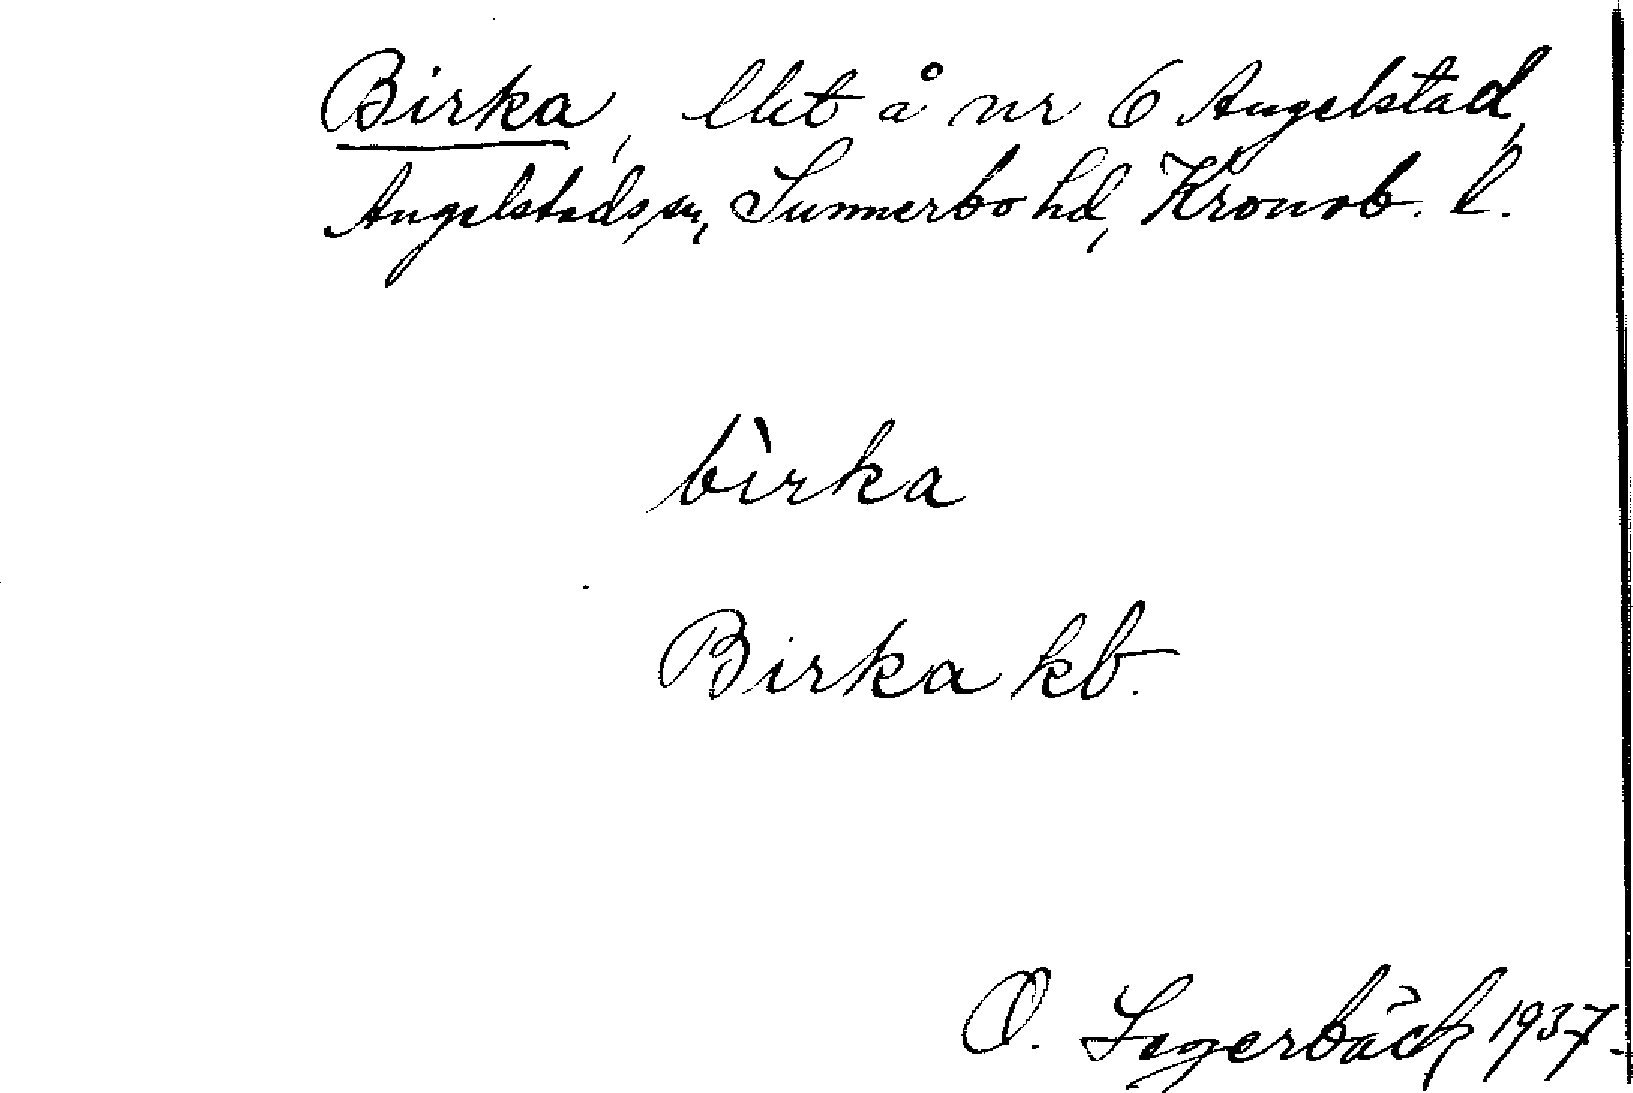 Birka, llht å nr 6 Angelstad,
Angelstads sn, Sunnerbo hd, Kronob. l.
bìrka
Birka kb.
O. Segerbäck 1937.